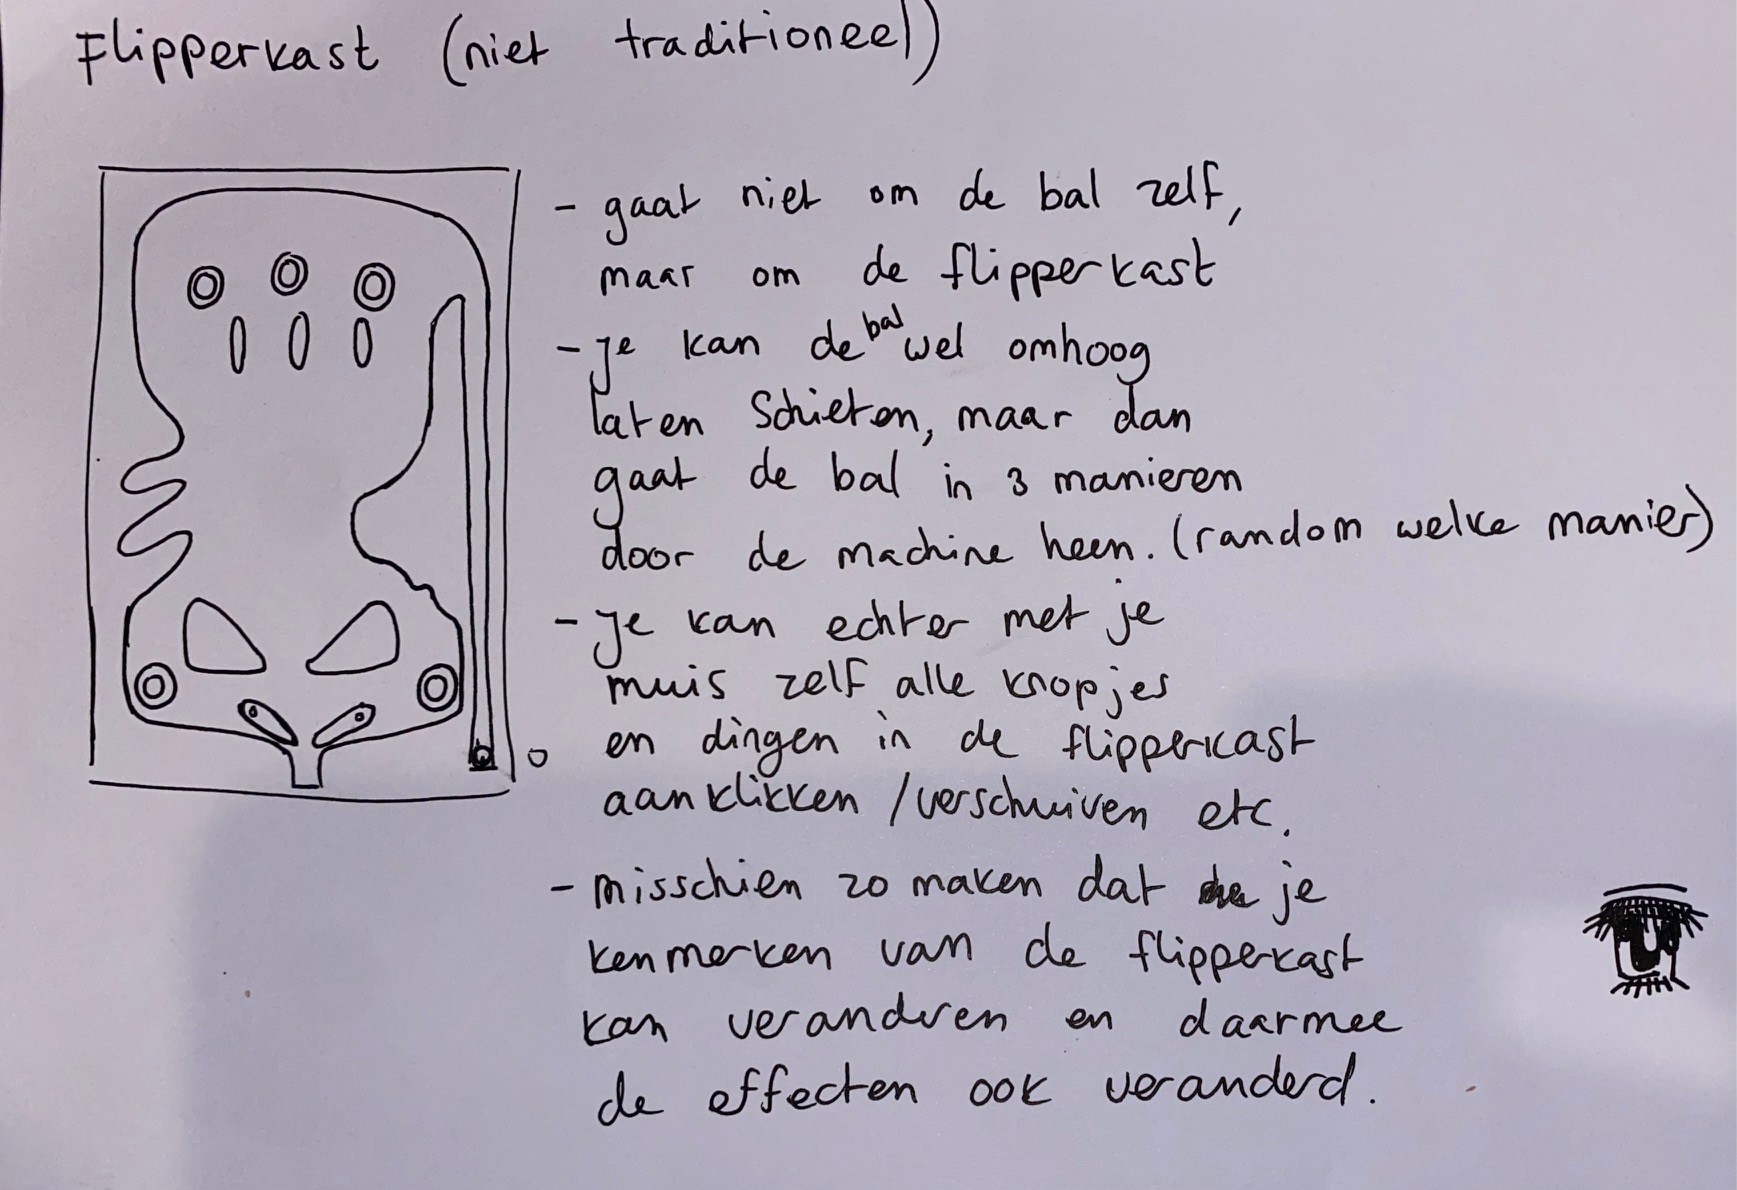 Flipperkast (niet traditioneel)
- gaat niet om de bal zelf,
maar om de flipperkast
- je kan de bal wel omhoog
laten schieten, maar dan
gaat de bal in 3 manieren
door de machine heen. (random welke manier)
- je kan echter met je
muis zelf alle knopjes
en dingen in de flipperkast
aanklikken / verschuiven etc.
- misschien zo maken dat je
kenmerken van de flipperkast
kan veranderen en daarmee
de effecten ook veranderd.